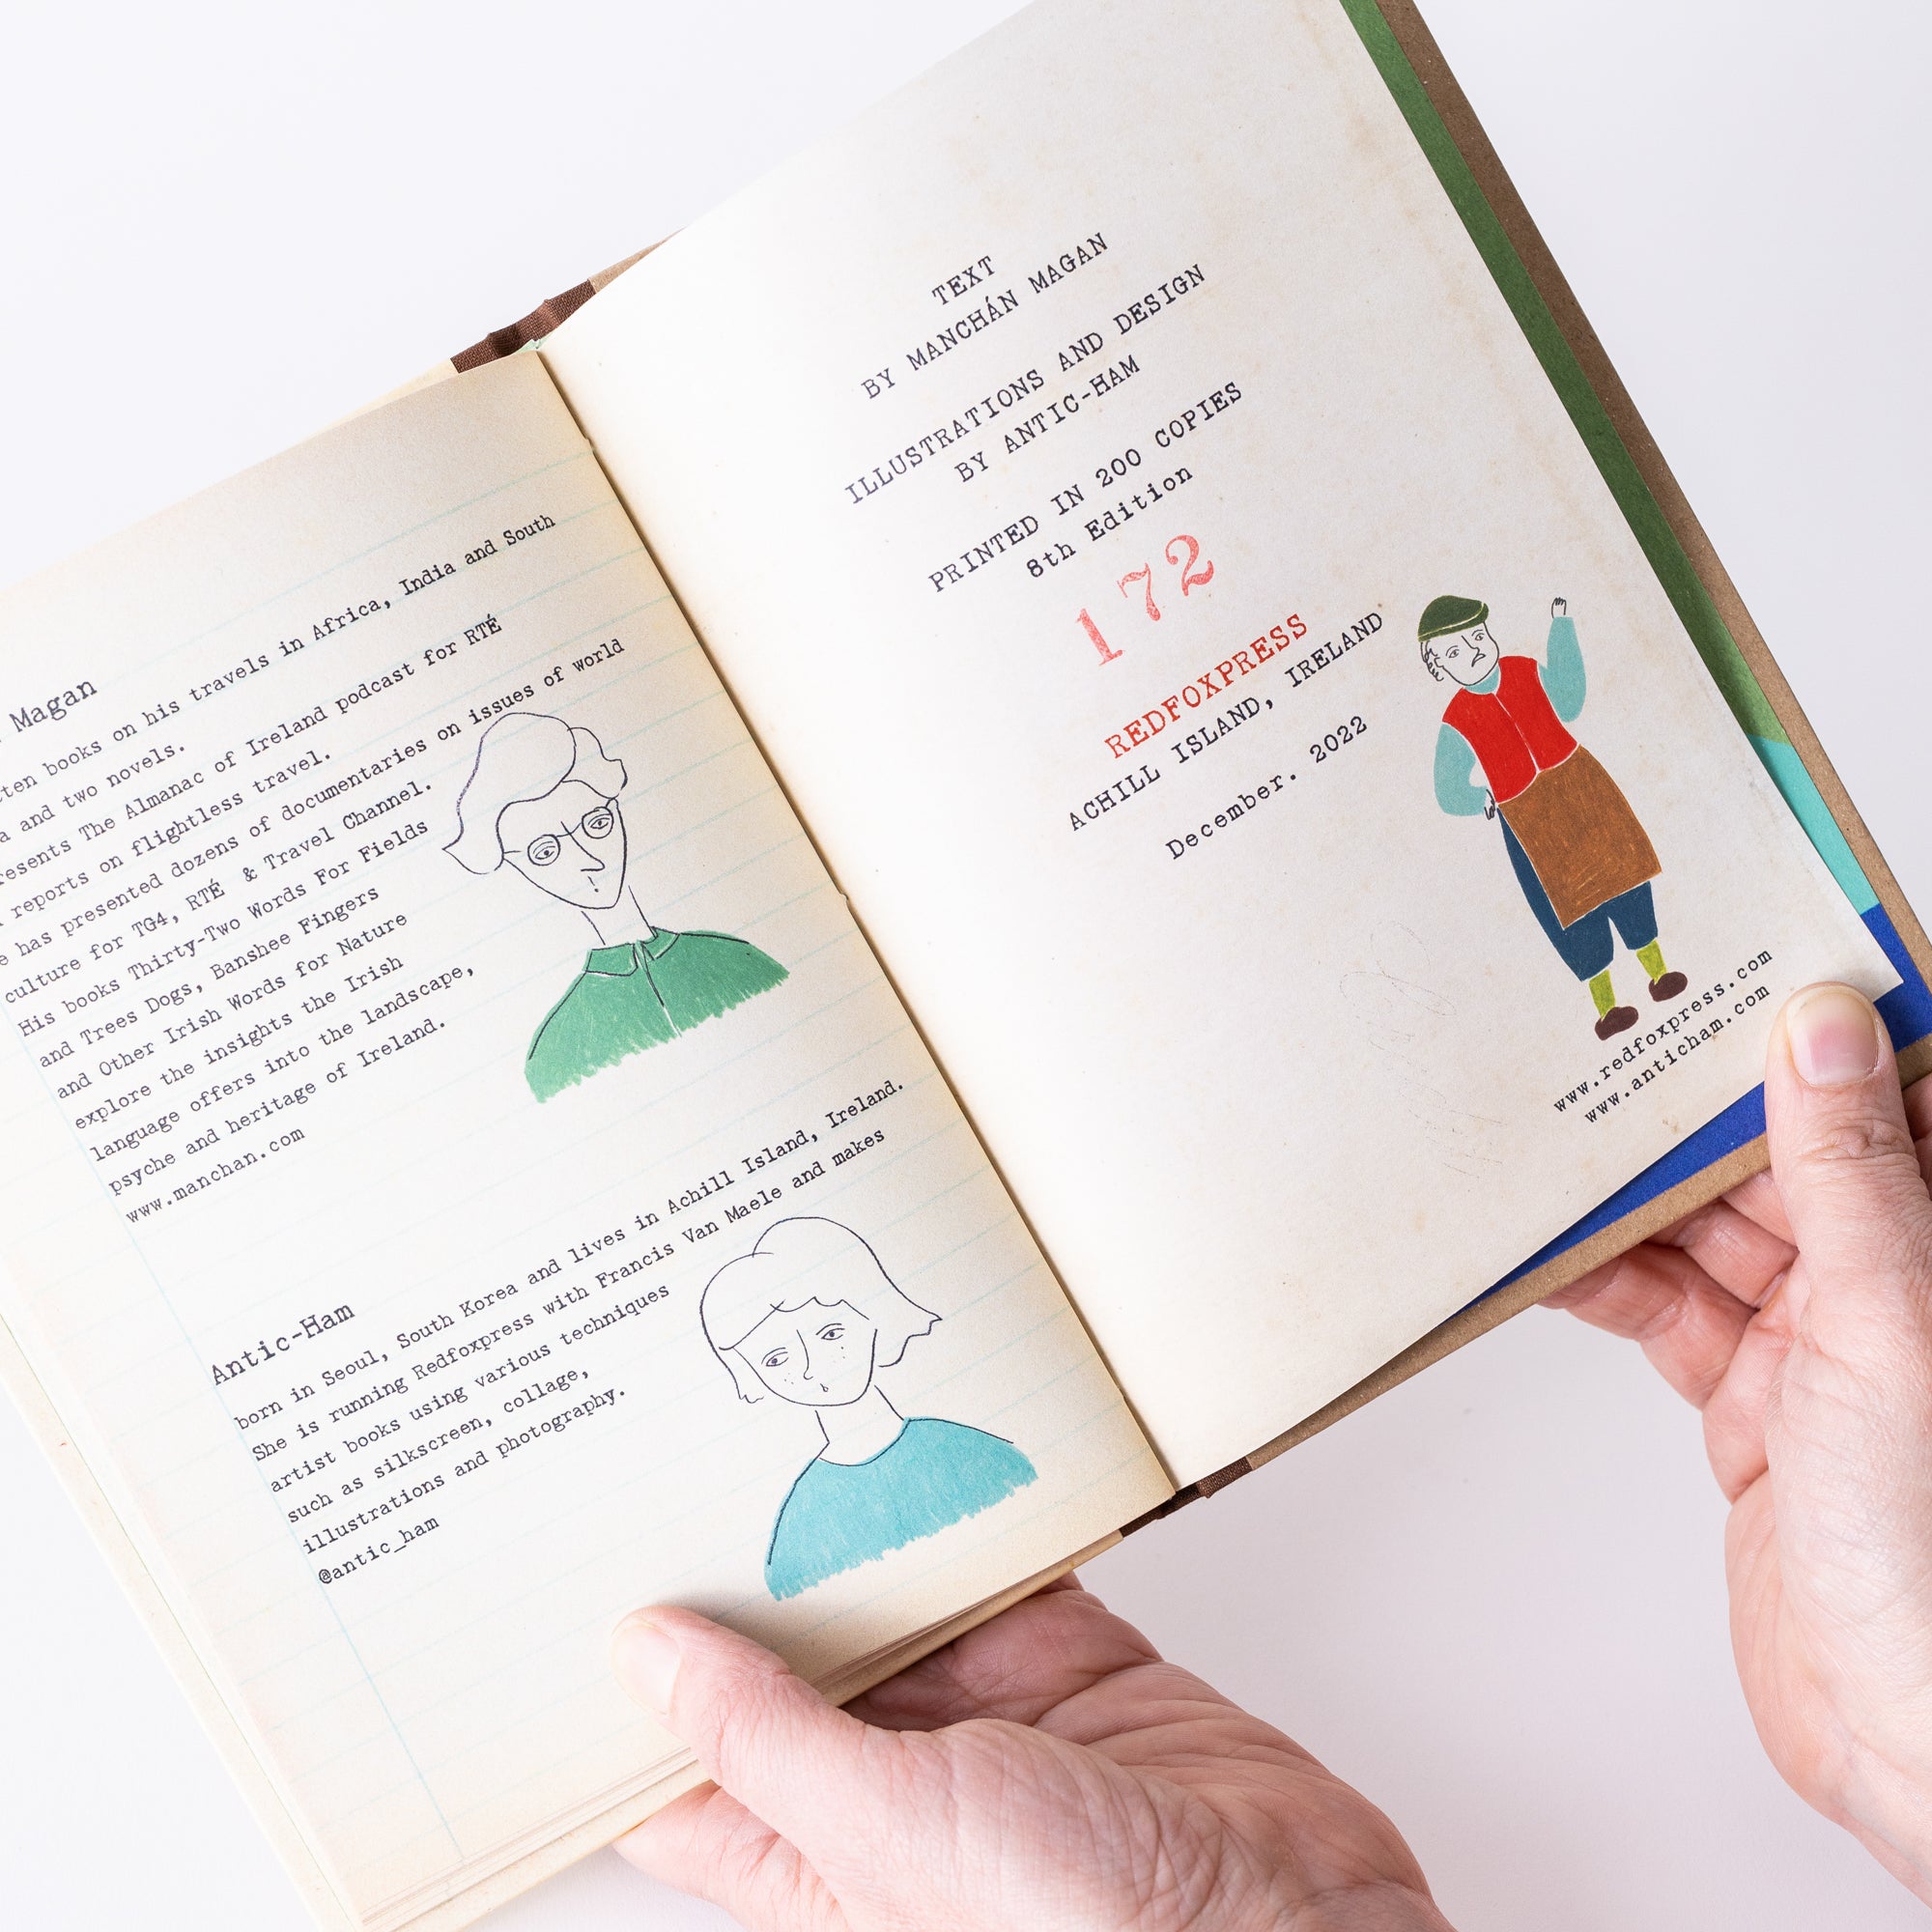 Magan
books on his travels in Africa, India and South
and two novels.
The Almanac of Ireland podcast for RTÉ
reports on flightless travel.
has presented dozens of documentaries on issues of world
culture for TG4, RTÉ & Travel Channel.
His books Thirty-Two Words For Fields
and Trees Dogs, Banshee Fingers
and Other Irish Words for Nature
explore the insights the Irish
language offers into the landscape,
psyche and heritage of Ireland.
www.manchan.com
Antic-Ham
born in Seoul, South Korea and lives in Achill Island, Ireland.
She is running Redfoxpress with Francis Van Maele and makes
artist books using various techniques
such as silkscreen, collage,
illustrations and photography.
@antic_ham
TEXT
BY MANCHÁN MAGAN
ILLUSTRATIONS AND DESIGN
BY ANTIC-HAM
PRINTED IN 200 COPIES
8th Edition
172
REDFOXPRESS
ACHILL ISLAND, IRELAND
December. 2022
www.redfoxpress.com
www.anticham.com